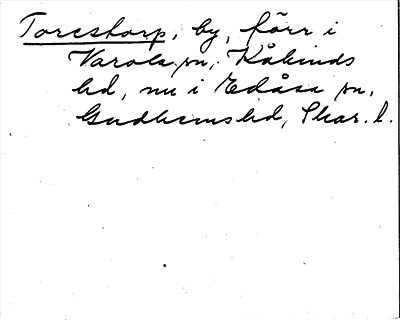 Torestorp, by, förr i
Varola sn, Kåkinds
hd, nu i Edåsa sn,
Gudhems hd, Skar. l.